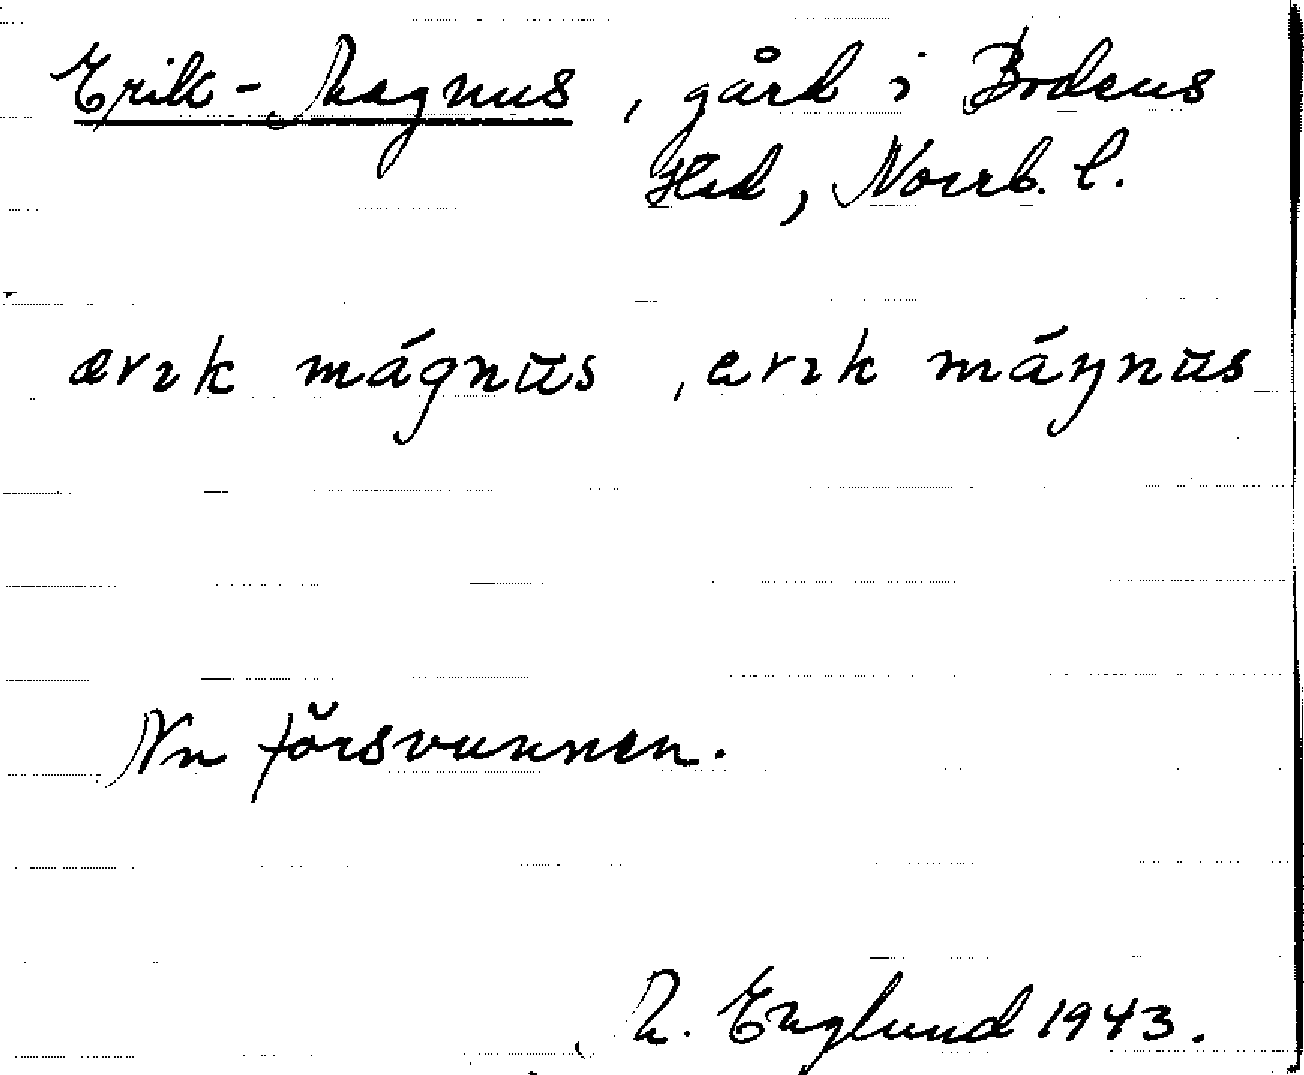 Erik-Magnus, gård i Bodens
Hed, Norrb. l.
ærık mágnūs, erık máŋnūs
Nu försvunnen.
R. Englund 1943.